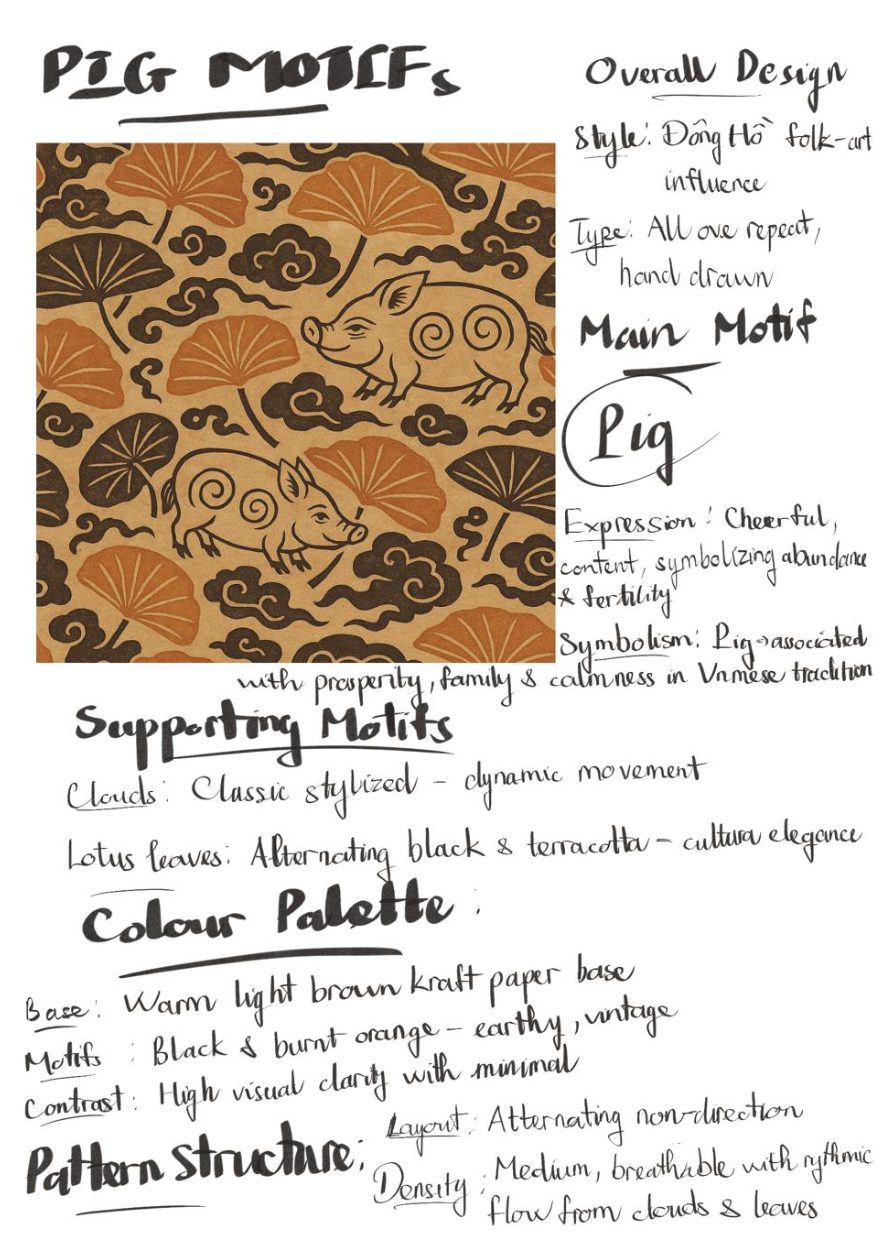 PIG MOTIFs
Overall Design
Style: Đông Hồ folk-art
influence
Type: All ove repeat,
hand drawn
Main Motif
Pig
Expression: Cheerful,
content, symbolizing abundance
& fertility
Symbolism: Pig→associated
with prosperity, family & calmness in Vnmese tradition
Supporting Motifs
Clouds: Classic stylized – dynamic movement
Lotus leaves: Alternating black & terracotta – cultura elegance
Colour Palette:
Base: Warm light brown kraft paper base
Motifs: Black & burnt orange – earthy, vintage
Contrast: High visual clarity with minimal
Pattern Structure:
Layout: Alternating non-direction
Density: Medium, breathable with rythmic
flow from clouds & leaves